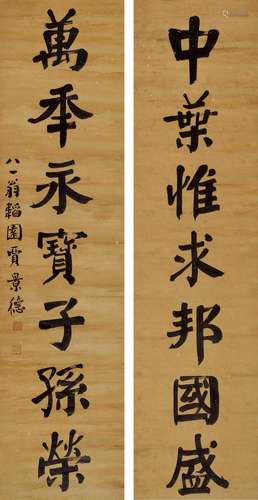 中葉惟求邦國盛
萬年永寶子孫榮
八一翁韜園賈景德